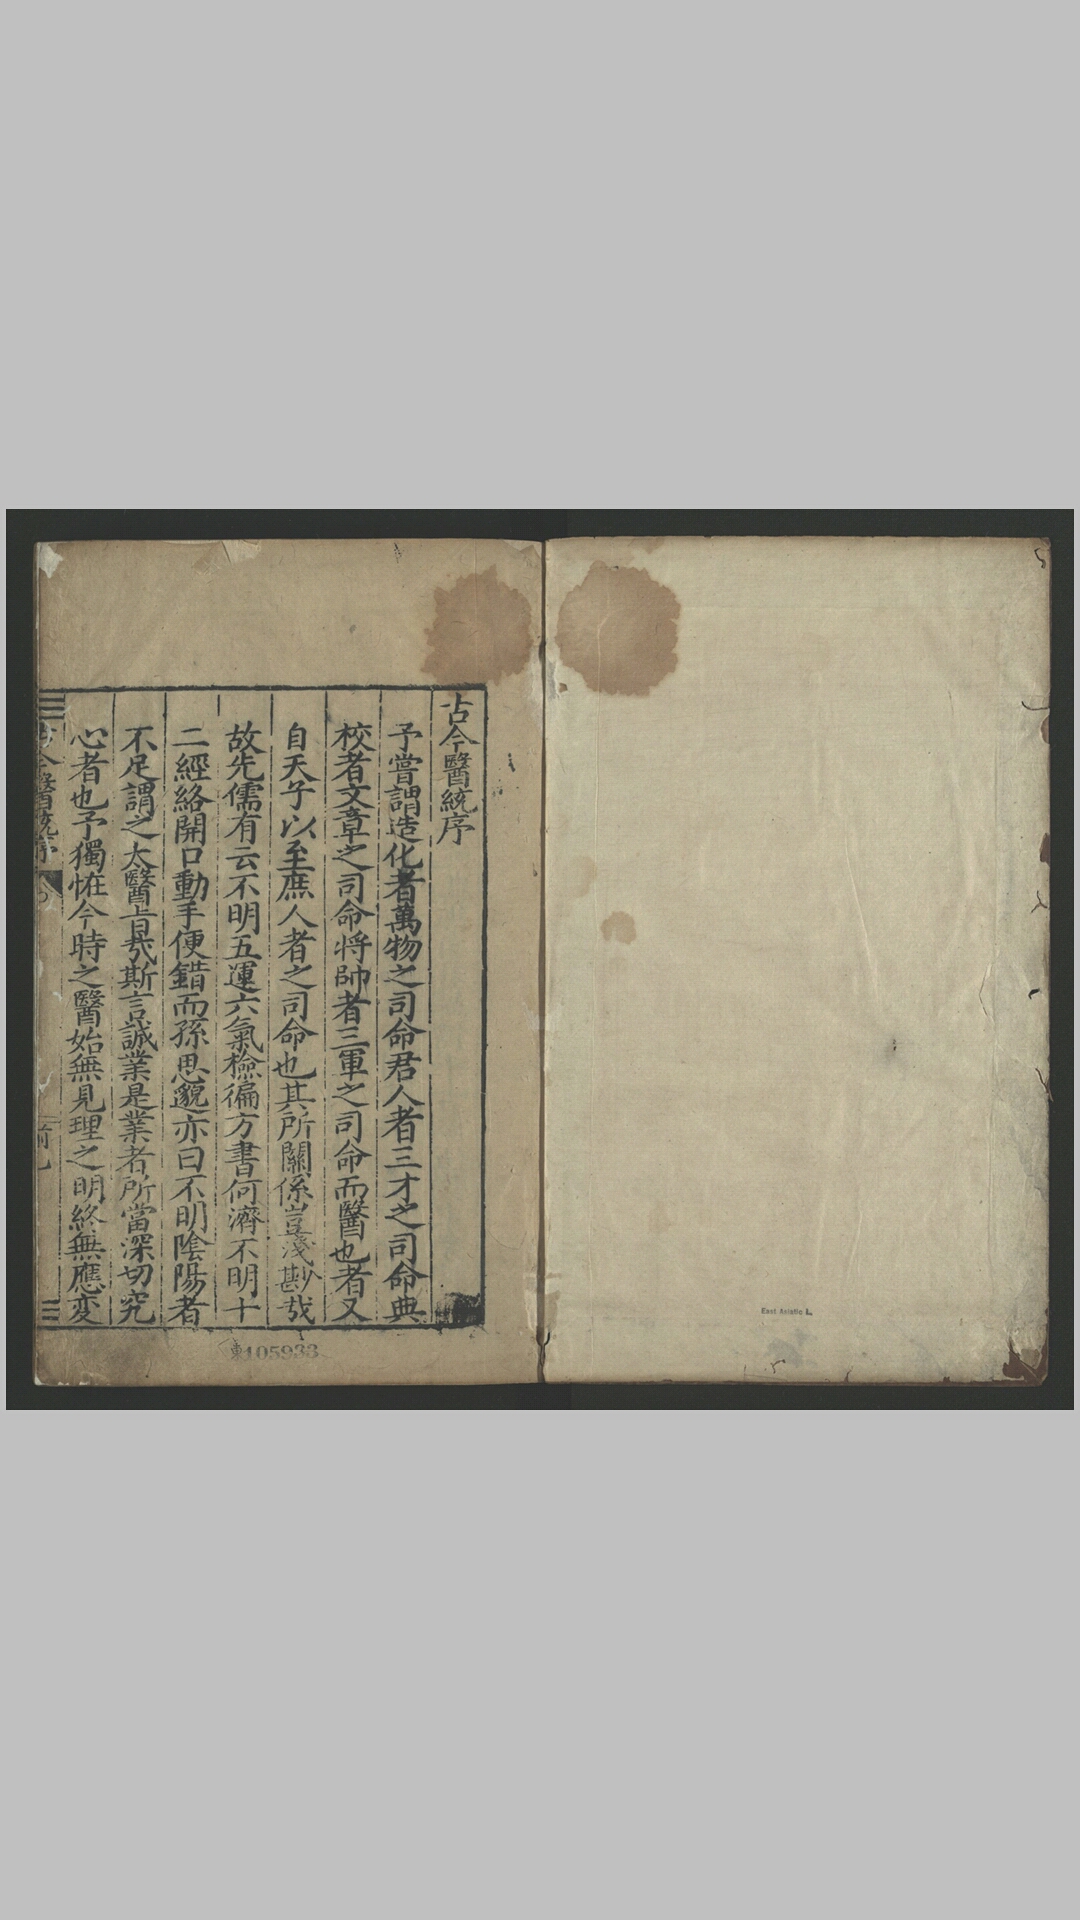 古今醫統序
予嘗謂造化者萬物之司命君人者三才之司命典
校者文章之司命将帥者三軍之司命而醫也者又
自天子以至庶人者之司命也其所關係豈淺尠㦲
故先儒有云不明五運六氣檢徧方書何濟不明十
二經絡開口動手便錯而孫思邈亦曰不明陰陽者
不足謂之太醫旨㢤斯言誠業是業者所當深切究
心者也予獨恠今時之醫始無見理之明終無應変
今醫統序
East Asiatic L.
東105933